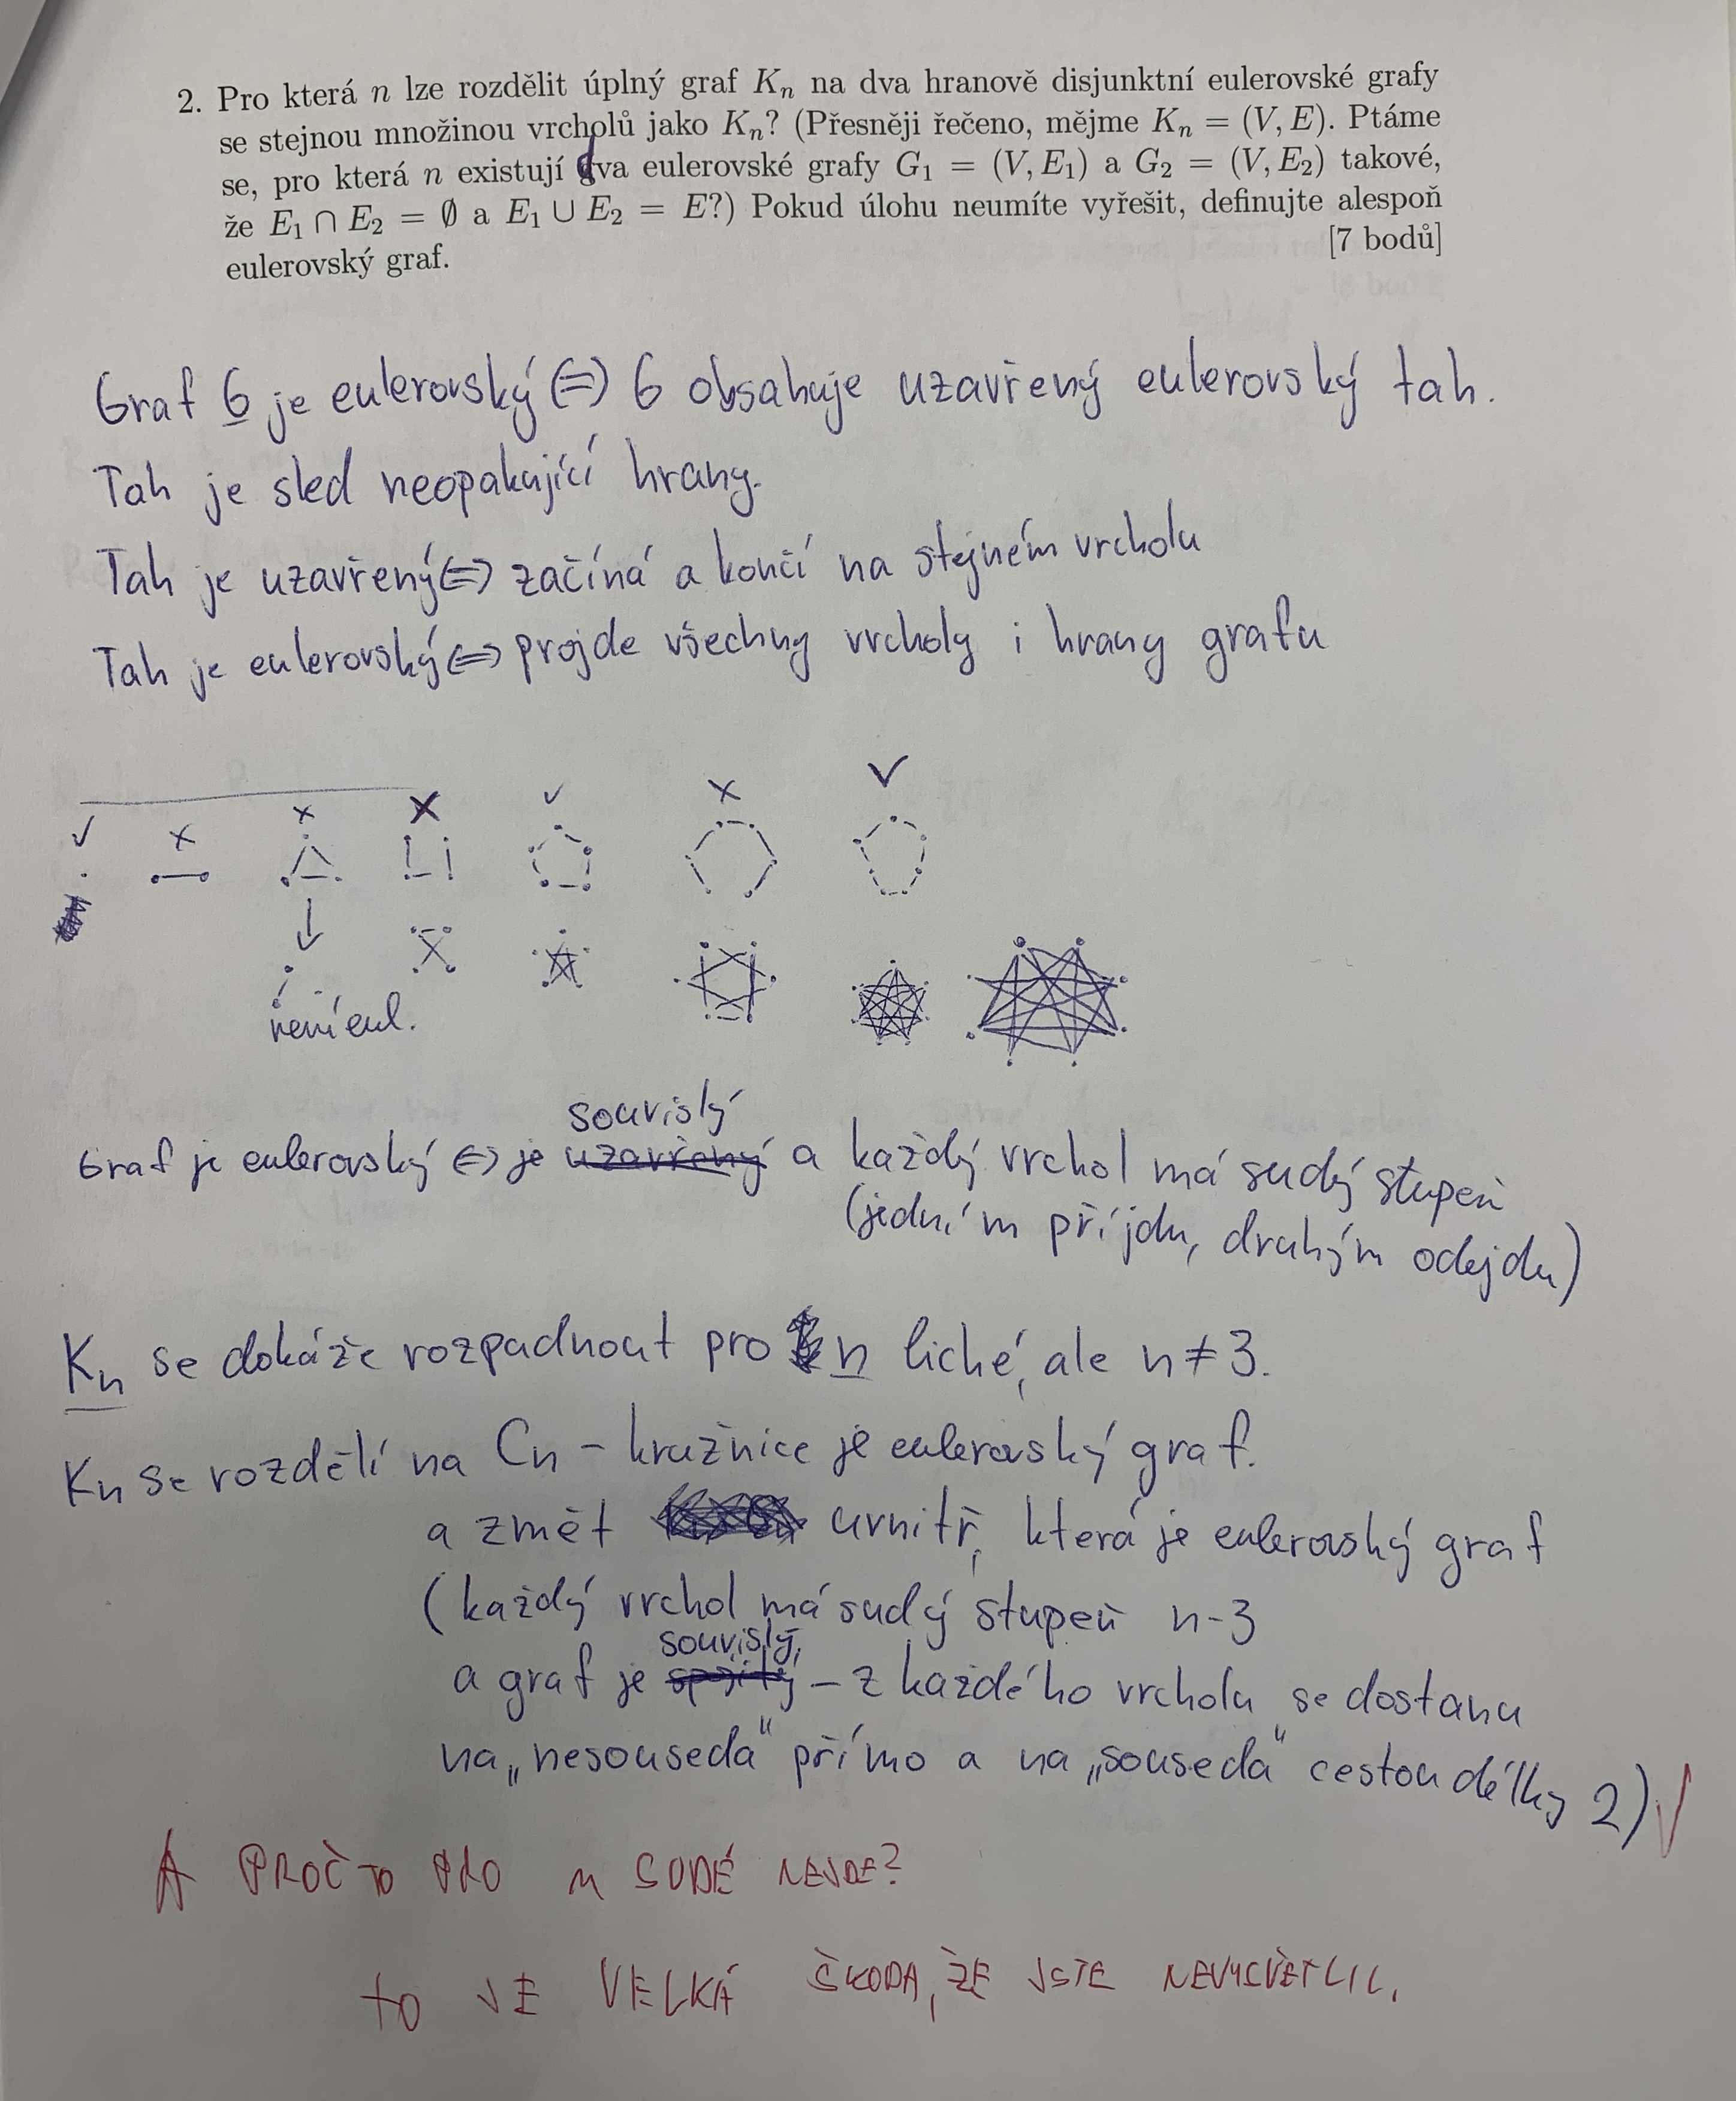 2. Pro která n lze rozdělit úplný graf Kₙ na dva hranově disjunktní eulerovské grafy
se stejnou množinou vrcholů jako Kₙ? (Přesněji řečeno, mějme Kₙ = (V, E). Ptáme
se, pro která n existují dva eulerovské grafy G₁ = (V, E₁) a G₂ = (V, E₂) takové,
že E₁ ∩ E₂ = ∅ a E₁ ∪ E₂ = E?) Pokud úlohu neumíte vyřešit, definujte alespoň
eulerovský graf. [7 bodů]
Graf G je eulerovský ⇔ G obsahuje uzavřený eulerovský tah.
Tah je sled neopakující hrany.
Tah je uzavřený ⇔ začíná a končí na stejném vrcholu
Tah je eulerovský ⇔ projde všechny vrcholy i hrany grafu
není eul.
souvislý
Graf je eulerovský ⇔ je uzavřený a každý vrchol má sudý stupeň
(jedním příjdu, druhým odejdu)
Kₙ se dokáže rozpadnout pro n liché, ale n ≠ 3.
Kₙ se rozdělí na Cₙ – kružnice je eulerovský graf.
a změť uvnitř, která je eulerovský graf
(každý vrchol má sudý stupeň n-3
souvislý,
a graf je – z každého vrcholu se dostanu
na „nesouseda" přímo a na „souseda" cestou délky 2) √
A PROČ TO PRO n SUDÉ NEJDE?
TO JE VELKÁ ŠKODA, ŽE JSTE NEVYSVĚTLIL.